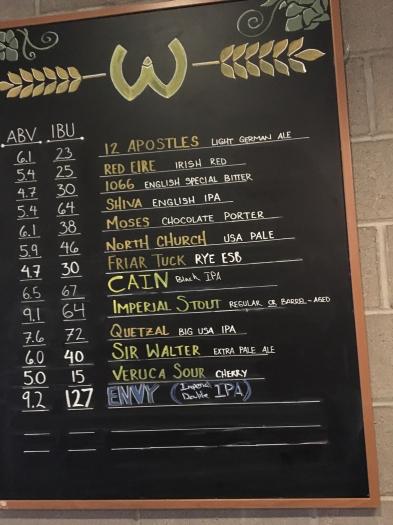 W
ABV IBU
6.1 23 12 APOSTLES LIGHT GERMAN ALE
5.4 25 RED EIRE IRISH RED
4.7 30 1066 ENGLISH SPECIAL BITTER
5.4 64 SHIVA ENGLISH IPA
6.1 38 MOSES CHOCOLATE PORTER
5.9 46 NORTH CHURCH USA PALE
4.7 30 FRIAR TUCK RYE ESB
6.5 67 CAIN Black IPA
9.1 64 IMPERIAL STOUT REGULAR OR BARREL-AGED
7.6 72 QUETZAL BIG USA IPA
6.0 40 SIR WALTER EXTRA PALE ALE
50 15 VERUCA SOUR CHERRY
9.2 127 ENVY (Imperial Double IPA)